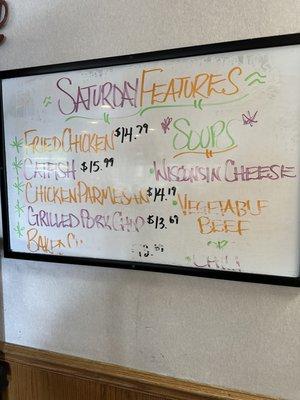 Saturday Features
Fried Chicken $14.79
Catfish $15.99
Chicken Parmesan $14.19
Grilled Pork Chop $13.69
Soups
Wisconsin Cheese
Vegetable
Beef
Chili